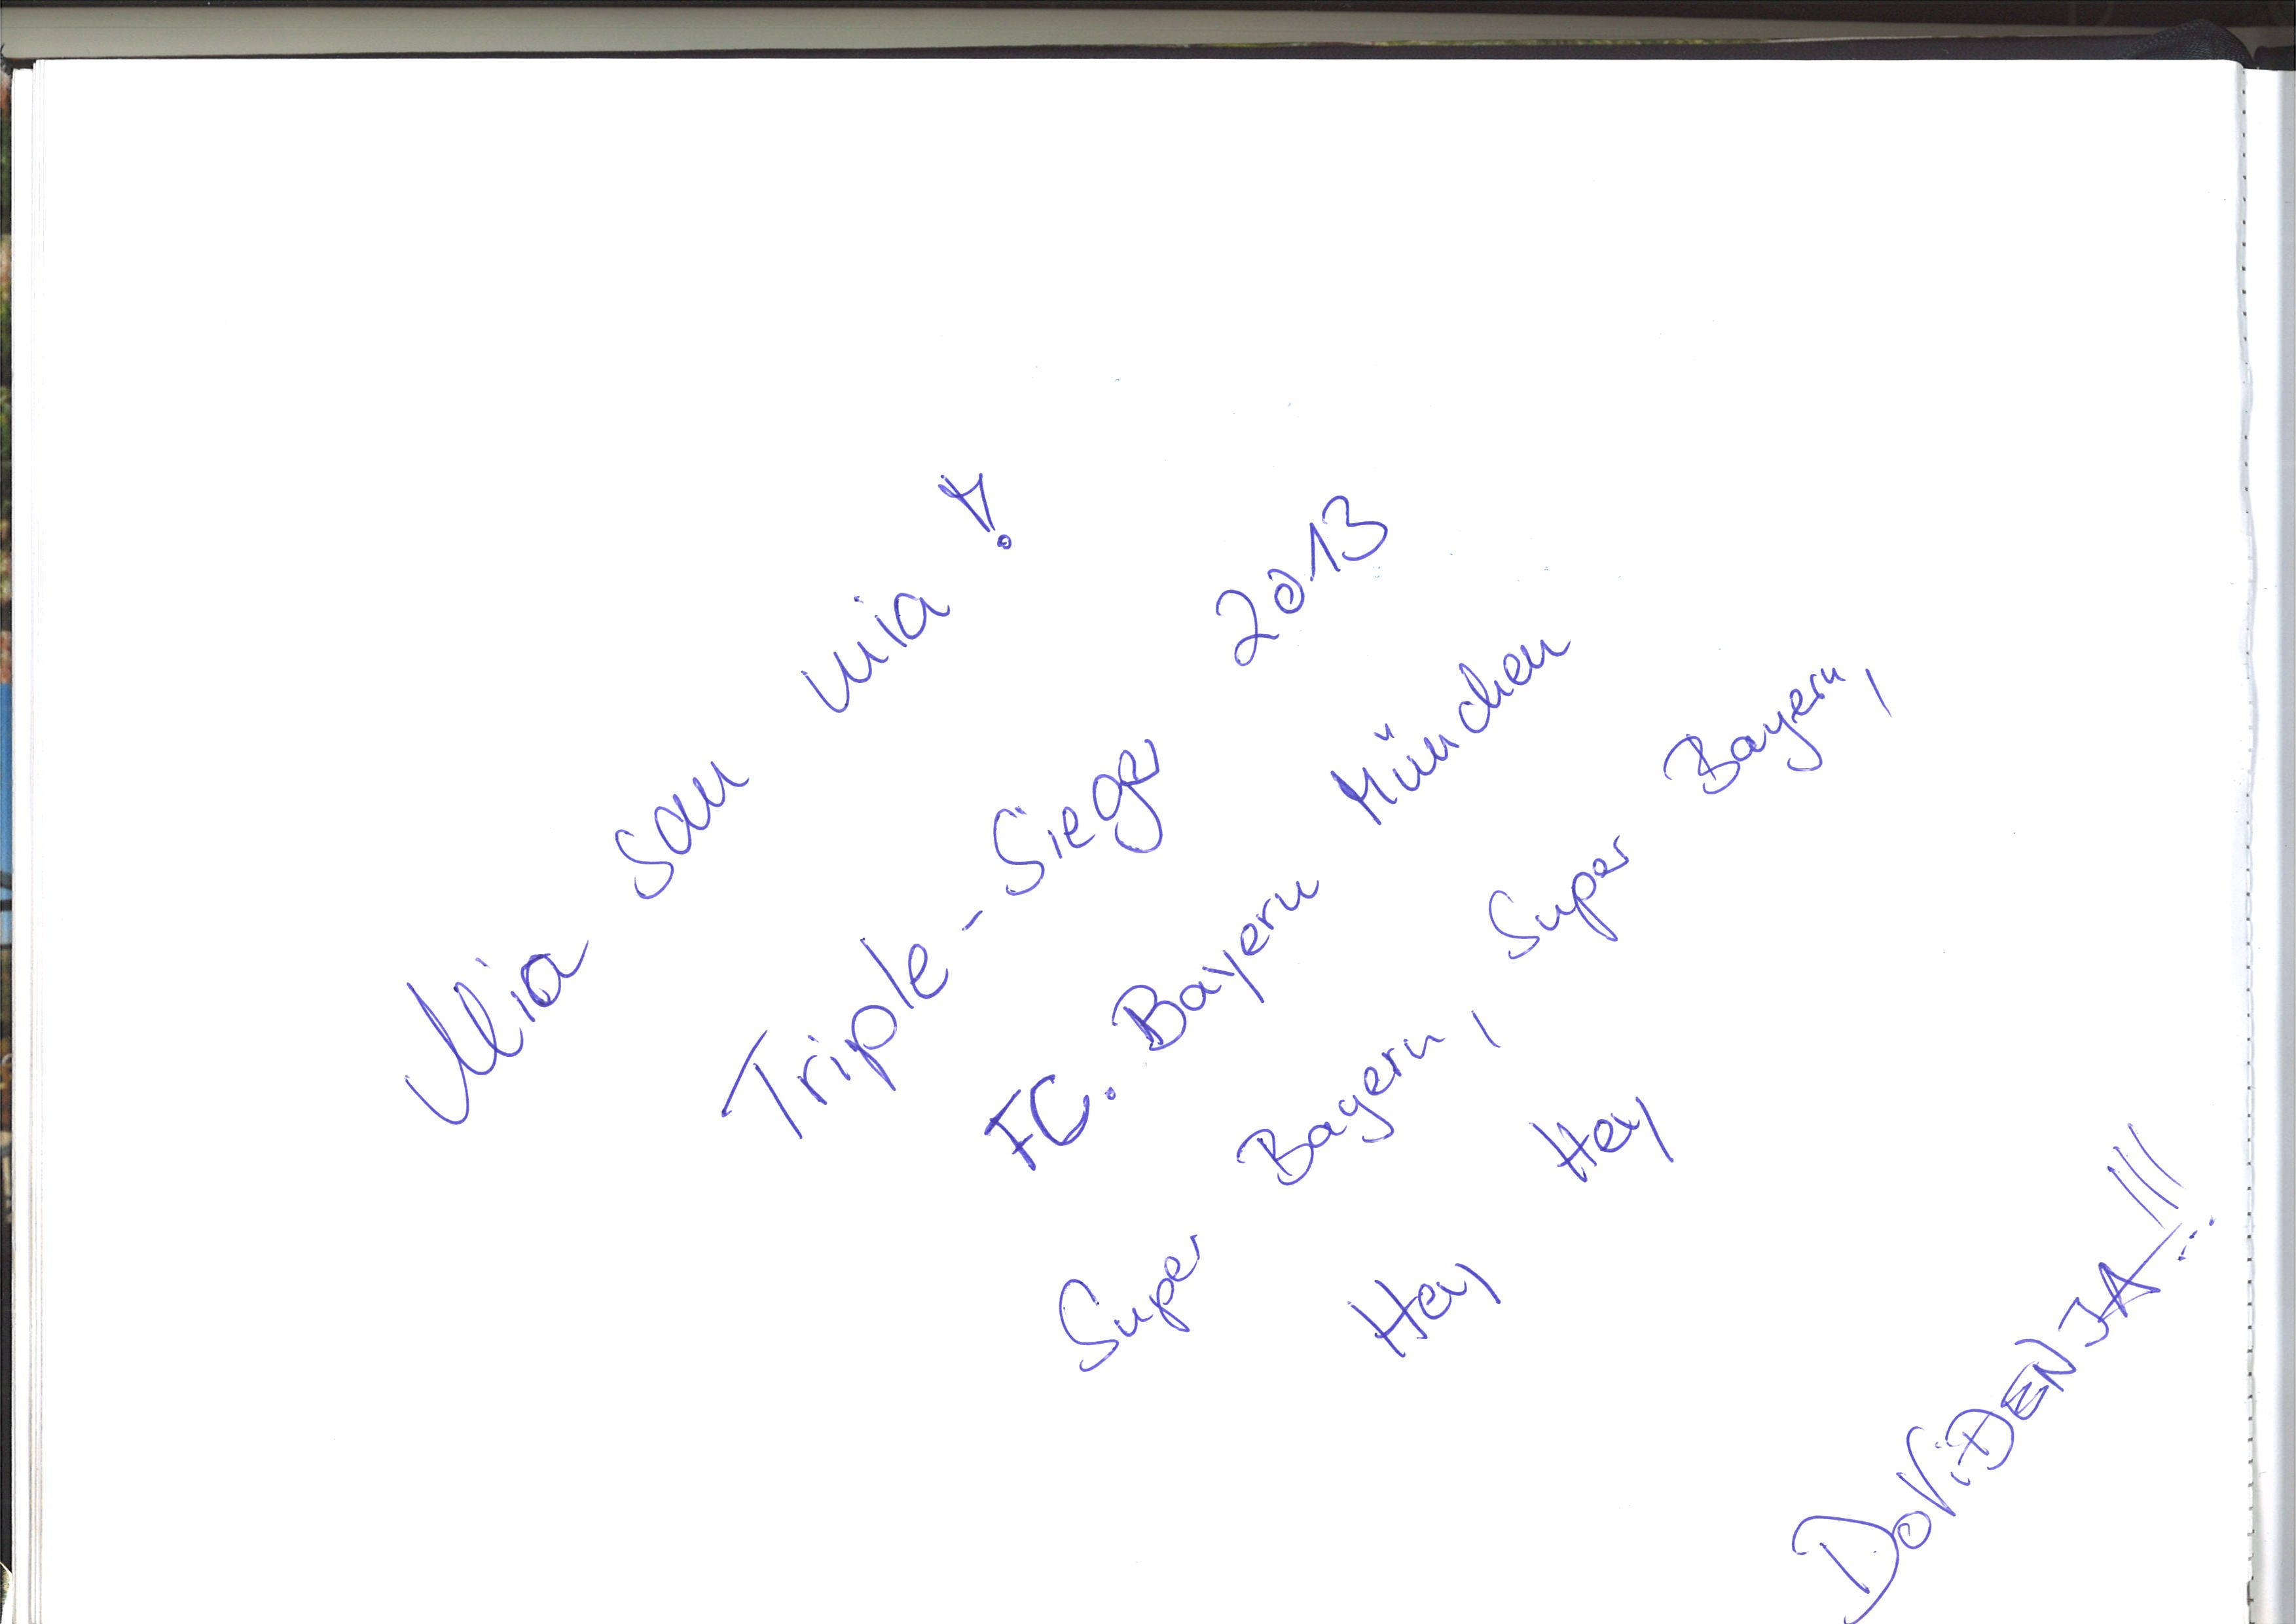 Mia san mia!
Triple-Sieger 2013
FC. Bayern München
Super Bayern, Super Bayern,
Hey Hey
DOViDENJA!!!